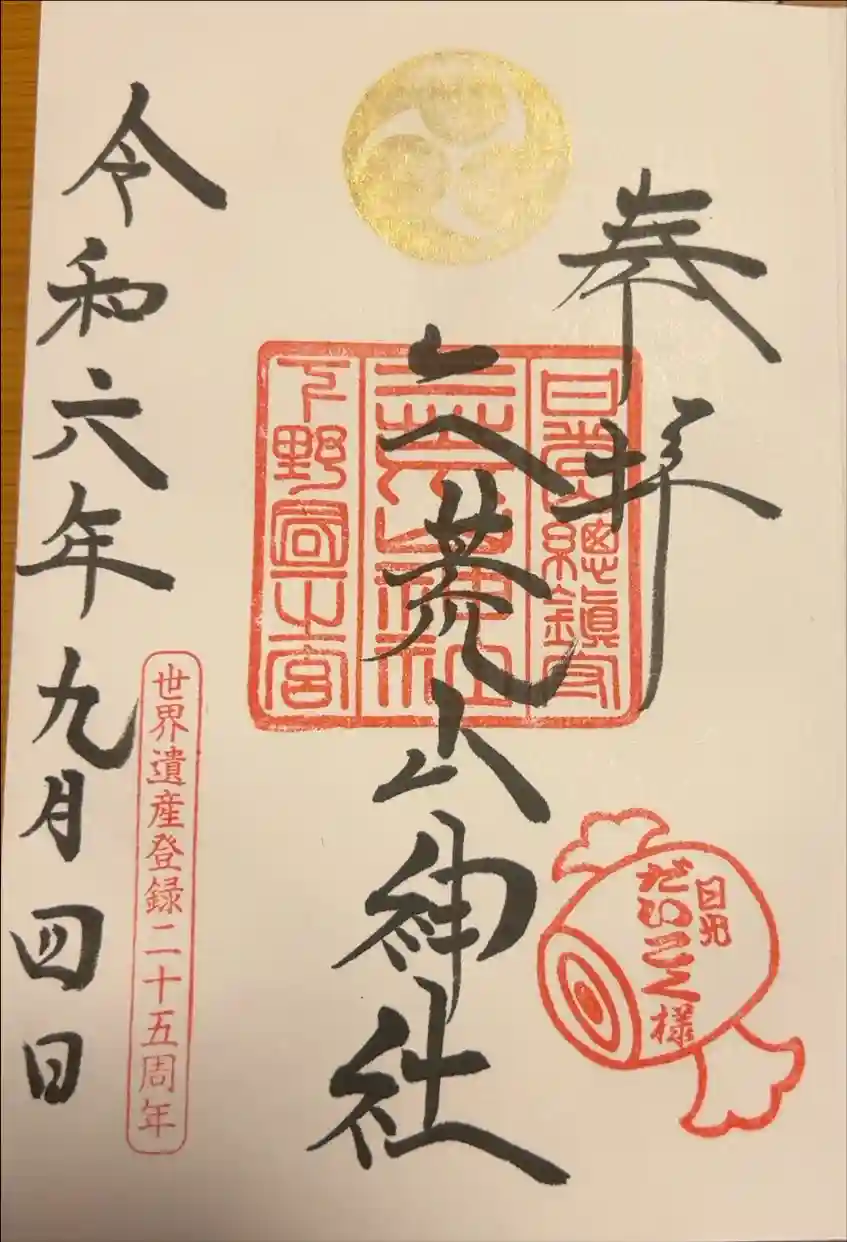 奉拝
日光總鎮守
二荒山神社
下野國一之宮
二荒山神社
日光
だいこく様
世界遺産登録二十五周年
令和六年九月四日